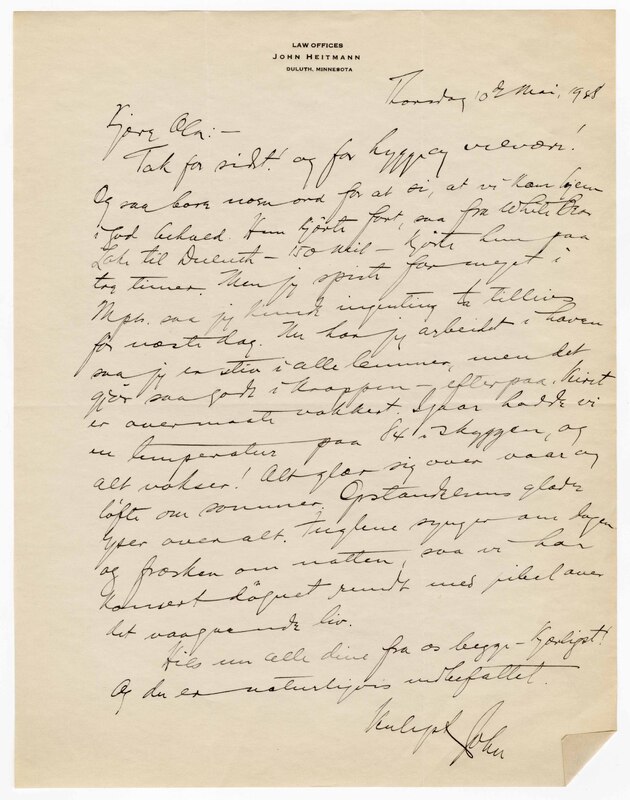 LAW OFFICES
JOHN HEITMANN
DULUTH, MINNESOTA
Thorsdag 10de Mai, 1928
Kjære Ola:—
Tak for sidst! og for hyggelig velvære!
Og saa bare noen ord for at si, at vi kom hjem
i god behold. Hun kjörte fort, saa fra White Bear
Lake til Duluth — 150 mil — kjörte hun paa
tre timer. Men jeg spiste for meget i
Mpls. saa jeg kunde ingenting ta tillivs
för næste dag. Nu har jeg arbeidet i haven
saa jeg er stiv i alle lemmer, men det
gjör saa godt i kroppen — efterpaa. Livet
er overmaate vakkert. Igaar hadde vi
en temperatur paa 84 i skyggen, og
alt vokser! Alt glær sig over vaar og
löfte om sommer. Opstandelsens glæde
lyser over alt. Fuglene synger om dagen
og frosken om natten, saa vi har
konsert dögnet rundt med jubel over
det vaagnende liv.
Hils nu alle dine fra os begge — kjærligst!
Og du er naturligvis indbefattet.
John